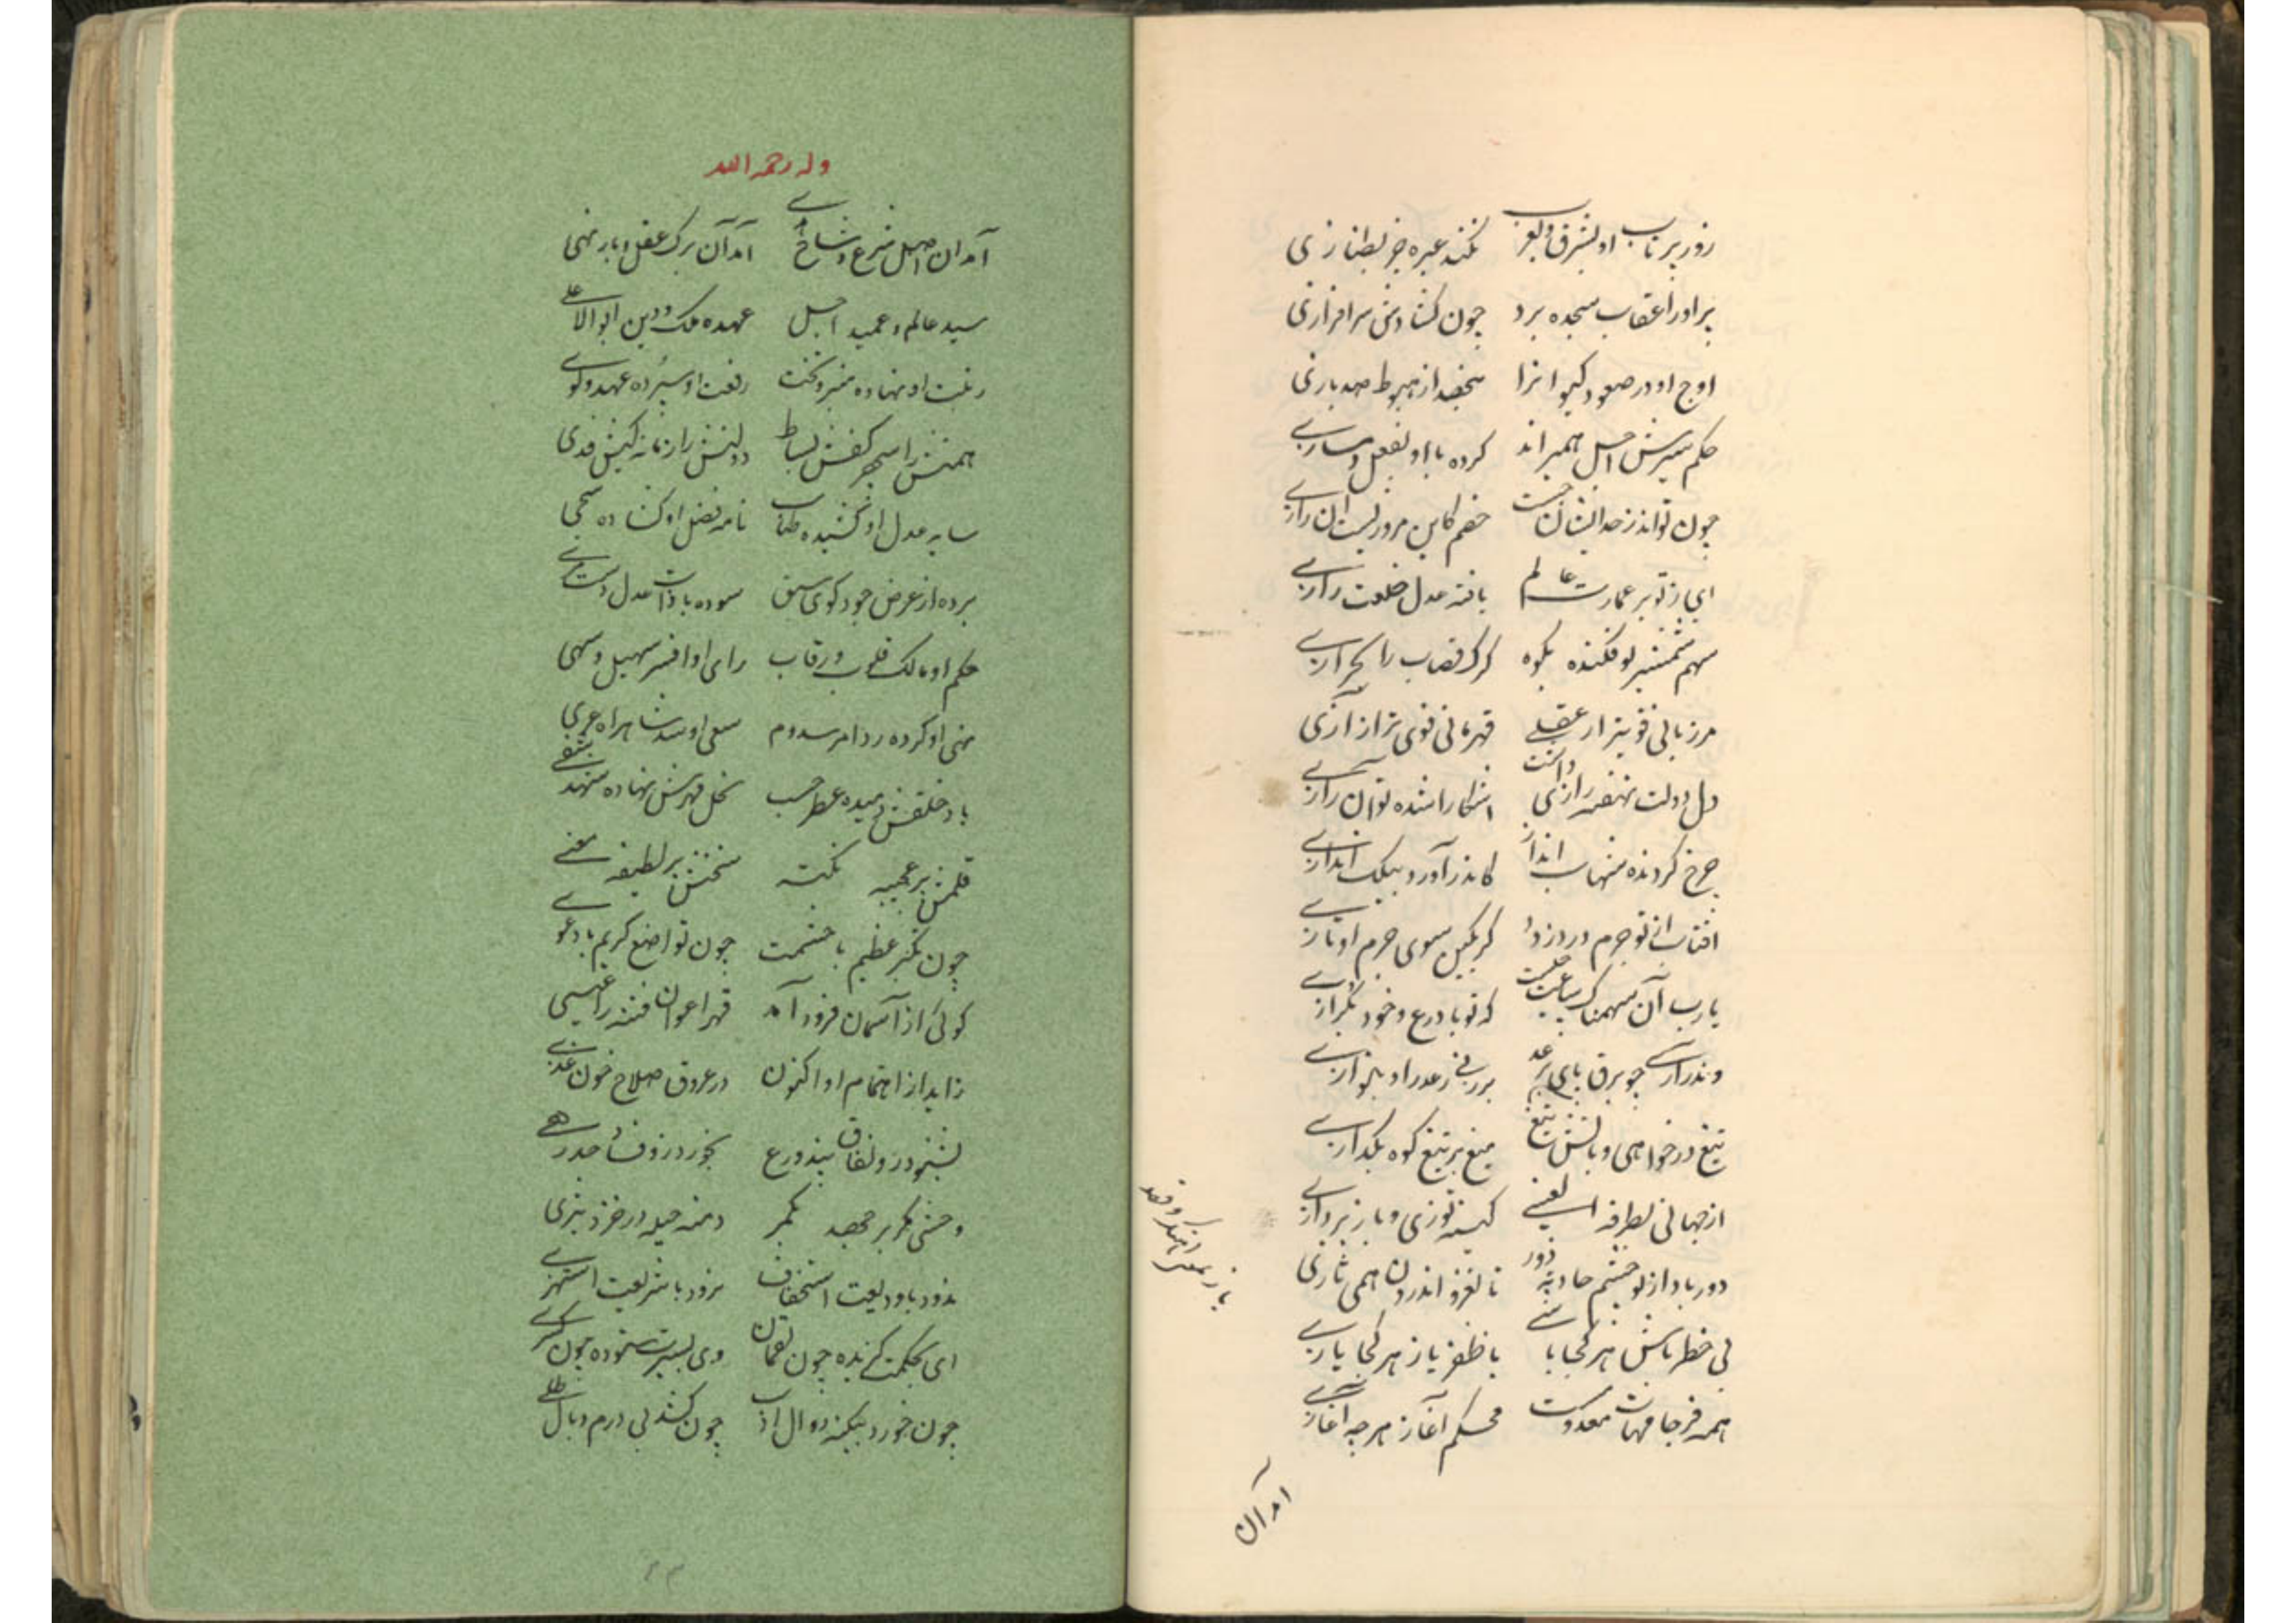 زور پرتاب او بشرق و بغرب نکند عبره جز بطنازی
پر او را عقاب سجده برد چون کشادش سرافرازی
اوج او در صعود کیوانرا بحضیض از هبوط صد بازی
حکم سیرش اجل همیراند کرده با او بفعل
چون تواند ز حد ایشان جست خصم کاین مروزیست ان رازی
ای ز تو بر عمارت عالم یافته عدل خلعت رازی
سهم شمشیر تو فکنده بکوه کرک قصاب را بخرازی
مرزبانی قویتر از عقلی قهرمانی قوی تر از ازی
دل دولت نهفته رازی داشت اشکارا شده تو آن رازی
چرخ کردنده منهاب انداز کاندر آورد بیکت اندازی
افتاب از تو جرم دزدد کر بکین سوی جرم او تازی
یارب آن سهمناک ساعت چیست که تو با درع و خود بکرازی
وندر آیی چو برق پای بر رعد بر در فی ز عدر او یازی
تیغ در خواهی و باتش تیغ میغ بر تیغ کوه بکدازی
از جهانی بطرفه اسبی یعنی کینه توزی و باز پردازی
دور باد از تو چشم حادثه دور تا بغزو اندرون همی تازی
بی خطر باش هر کجا باشی با ظفر یاز هر کجا یازی
همه فرجامهات معدوست محکم آغاز هر چه آغازی
امد آن
وله رحمه الله
آمد ان اصل شرع و شاخ امد آن برک عقل و بار نهی
سید عالم و عمید اجل عهده ملک و دین ابوالاعلی
رتبت او نهاده منبر و تخت رفعت او سپرده عهد و لوی
همتش را سپهر کفش بساط دولتش را زمانه کیش فدی
سایه عدل او کشیده طناب نامه فضل او کشاده سحی
برده از عرض جود کوی سبق سوده با ذات عدل دست مری
حکم او مالک قلوب و رقاب رای او افسر سهیل و سهی
نهی او کرده رد امر سدوم سعی او سد شاهراه عری
باد خلقش دمیده عطر حسب نخل قهرش نهاده شهد بشفی
قلمش بر عجیبه نکته سخنش بر لطیفه معنی
چون تکبر عظیم با حشمت چون تواضع کریم با دعوی
کوئی از آسمان فرود آمد قهر اعوان فتنه را عیسی
زاید از اهتمام او اکنون در عروق صلاح خون غذی
بشنود زو نفاق پند ورع بخورد زو فساد حد زنی
وحشی مکر بر جهد بکمر دمنه حیله در خزد بنری
ندود با ودیعت استخفاف نرود با شریعت استهزی
ای بحکمت کزیده چون لقمان وی بسیرت ستوده چون کسری
چون خورد بیکنه دوال ادب چون کشد بی درم وبال طلی